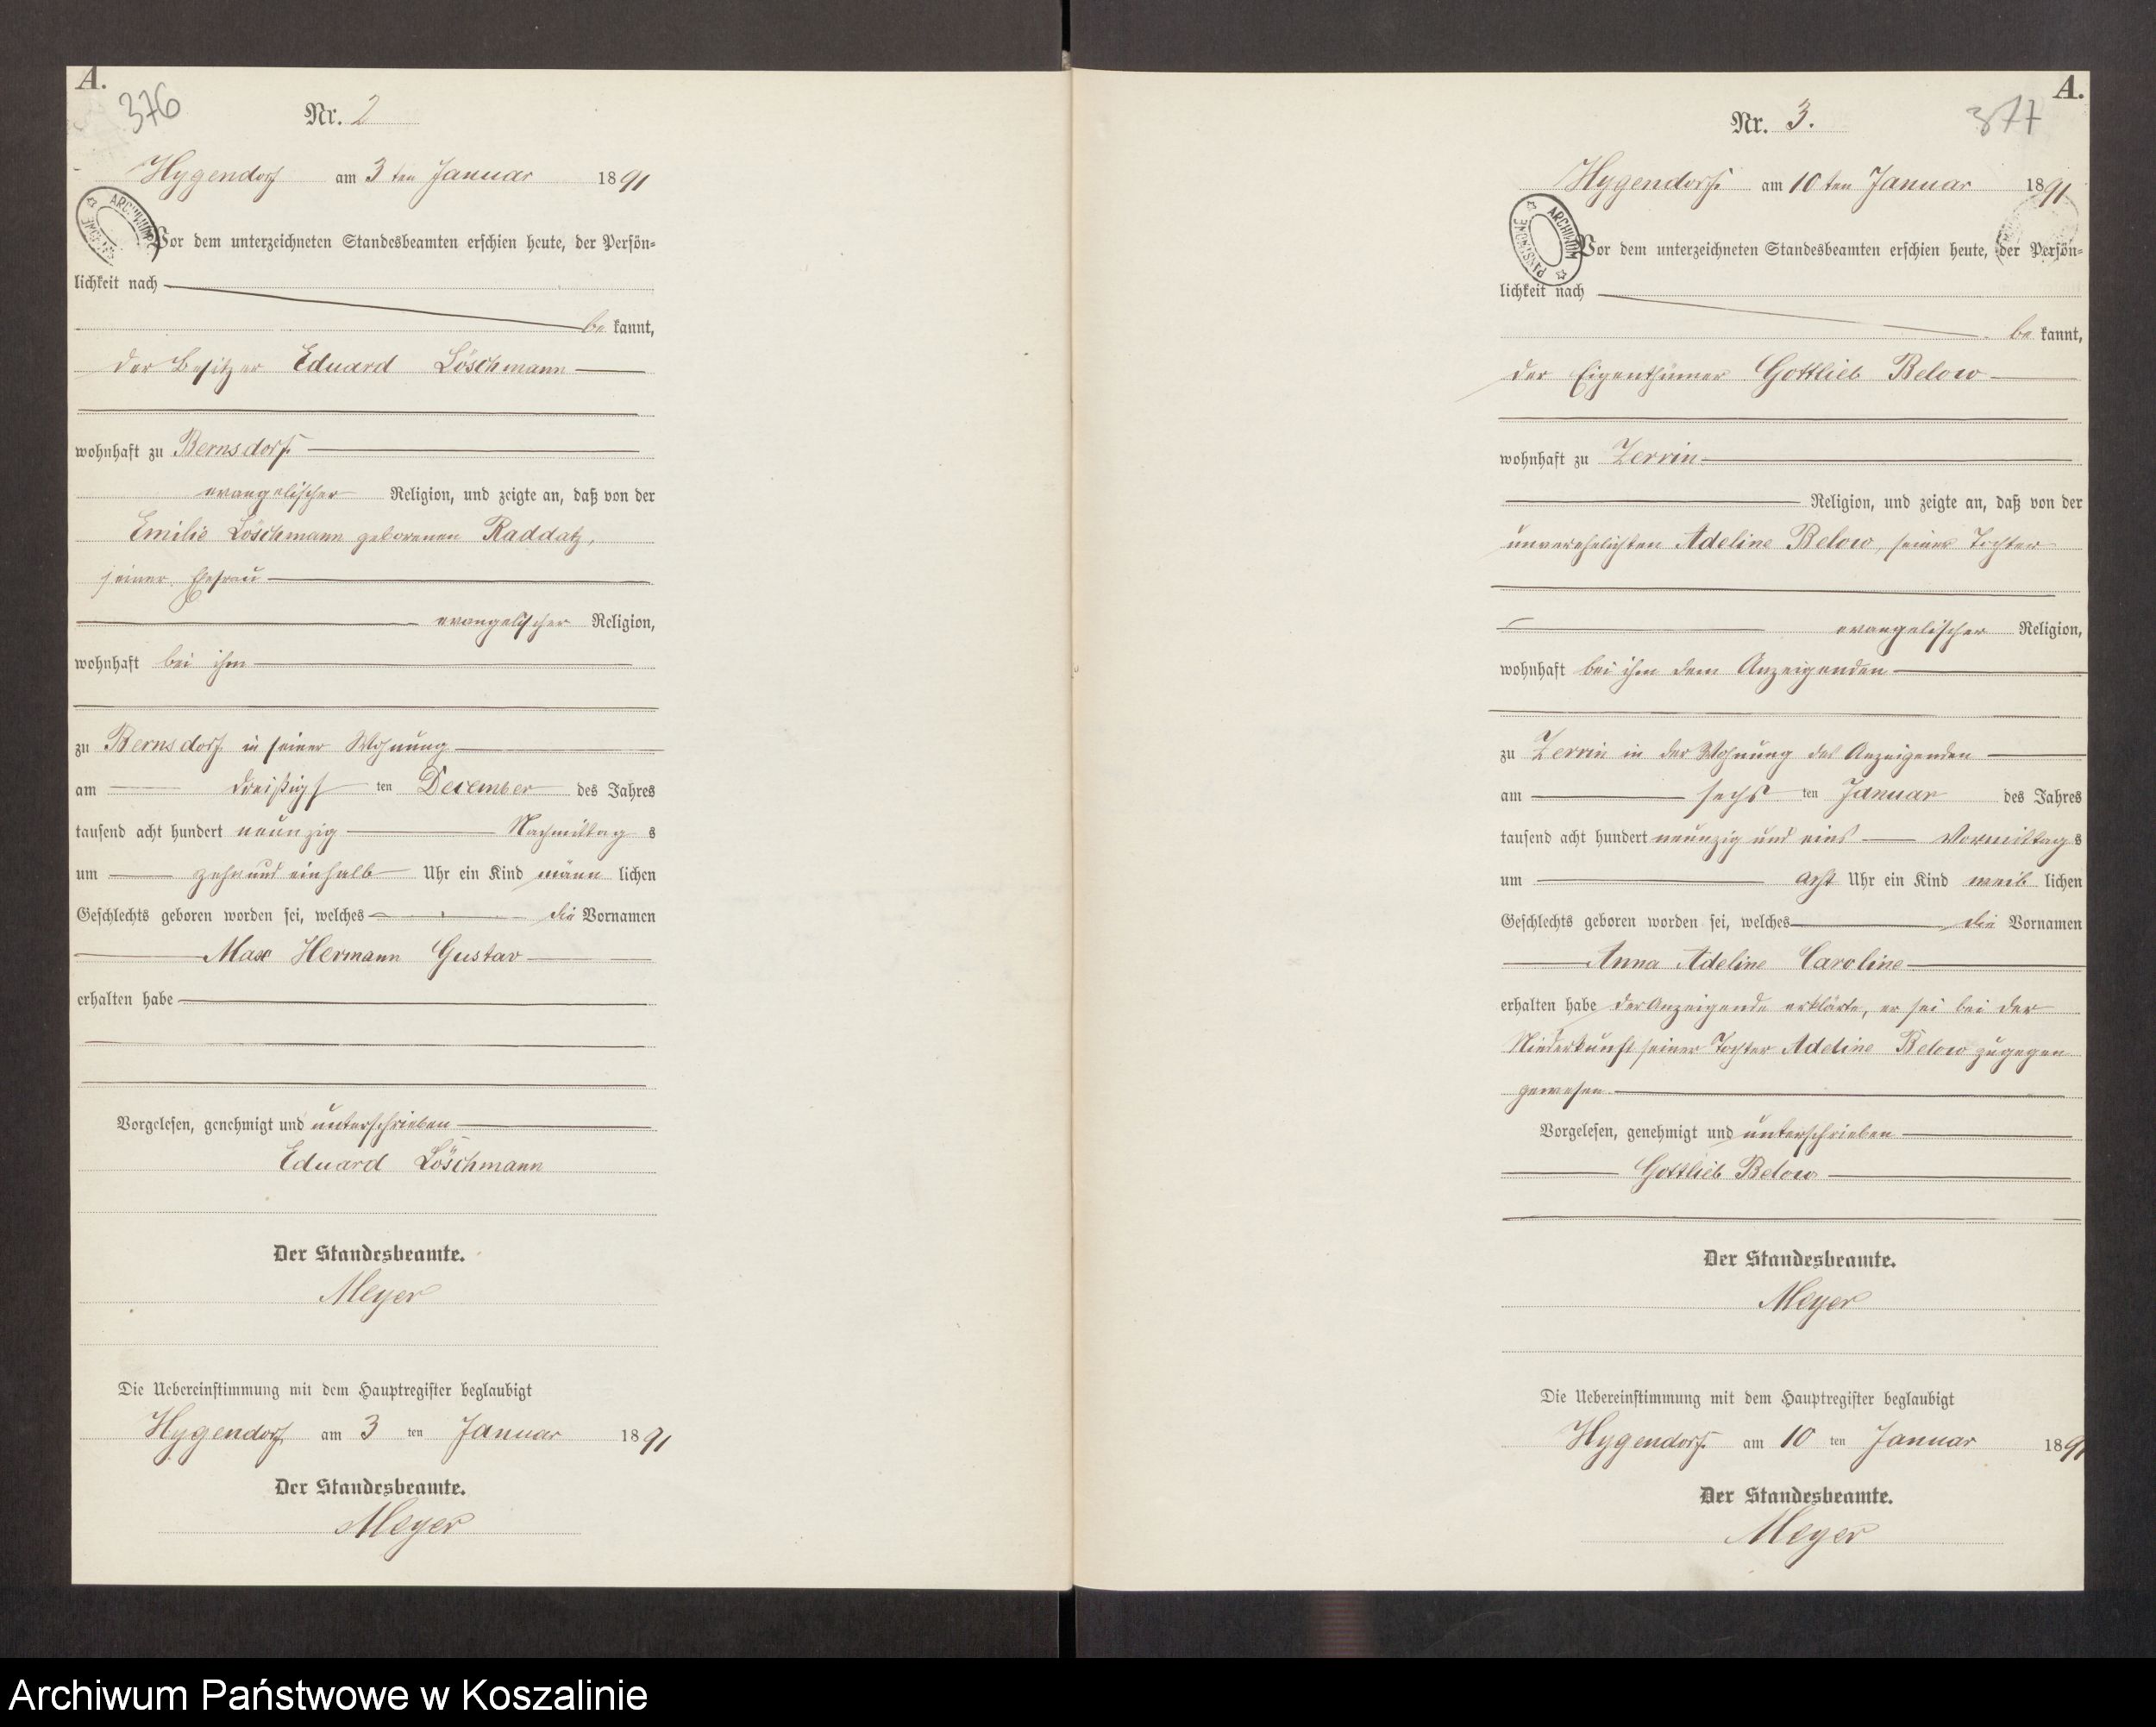 A.
376
Nr. 2
Hygendorf am 3 ten Januar 1891
ARCHIWUM
Vor dem unterzeichneten Standesbeamten erschien heute, der Persön=
lichkeit nach
be kannt,
der Besitzer Eduard Löschmann
wohnhaft zu Bernsdorf
evangelischer Religion, und zeigte an, daß von der
Emilie Löschmann geborenen Raddatz,
seiner Ehefrau
evangelischer Religion,
wohnhaft bei ihm
zu Bernsdorf in seiner Wohnung
am dreißigs ten December des Jahres
tausend acht hundert neunzig Nachmittag s
um zehn und einhalb Uhr ein Kind männ lichen
Geschlechts geboren worden sei, welches die Vornamen
Max Hermann Gustav
erhalten habe
Vorgelesen, genehmigt und unterschrieben
Eduard Löschmann
Der Standesbeamte.
Meyer
Die Uebereinstimmung mit dem Hauptregister beglaubigt
Hygendorf am 3 ten Januar 1891
Der Standesbeamte.
Meyer
A.
377
Nr. 3.
Hygendorf am 10 ten Januar 1891
ARCHIWUM PAŃSTWOWE
Vor dem unterzeichneten Standesbeamten erschien heute, der Persön=
lichkeit nach
be kannt,
der Eigenthümer Gottlieb Below
wohnhaft zu Zerrin
Religion, und zeigte an, daß von der
unverehelichten Adeline Below, seiner Tochter
evangelischer Religion,
wohnhaft bei ihm dem Anzeigenden
zu Zerrin in der Wohnung des Anzeigenden
am sechs ten Januar des Jahres
tausend acht hundert neunzig und eins Vormittag s
um acht Uhr ein Kind weib lichen
Geschlechts geboren worden sei, welches die Vornamen
Anna Adeline Caroline
erhalten habe der Anzeigende erklärte, er sei bei der
Niederkunft seiner Tochter Adeline Below zugegen
gewesen
Vorgelesen, genehmigt und unterschrieben
Gottlieb Below
Der Standesbeamte.
Meyer
Die Uebereinstimmung mit dem Hauptregister beglaubigt
Hygendorf am 10 ten Januar 1891
Der Standesbeamte.
Meyer
Archiwum Państwowe w Koszalinie